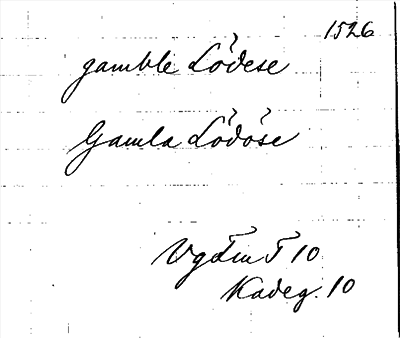 1526
gamble Lödese
Gamla Lödöse
VgFmT 10
Kadeg. 10